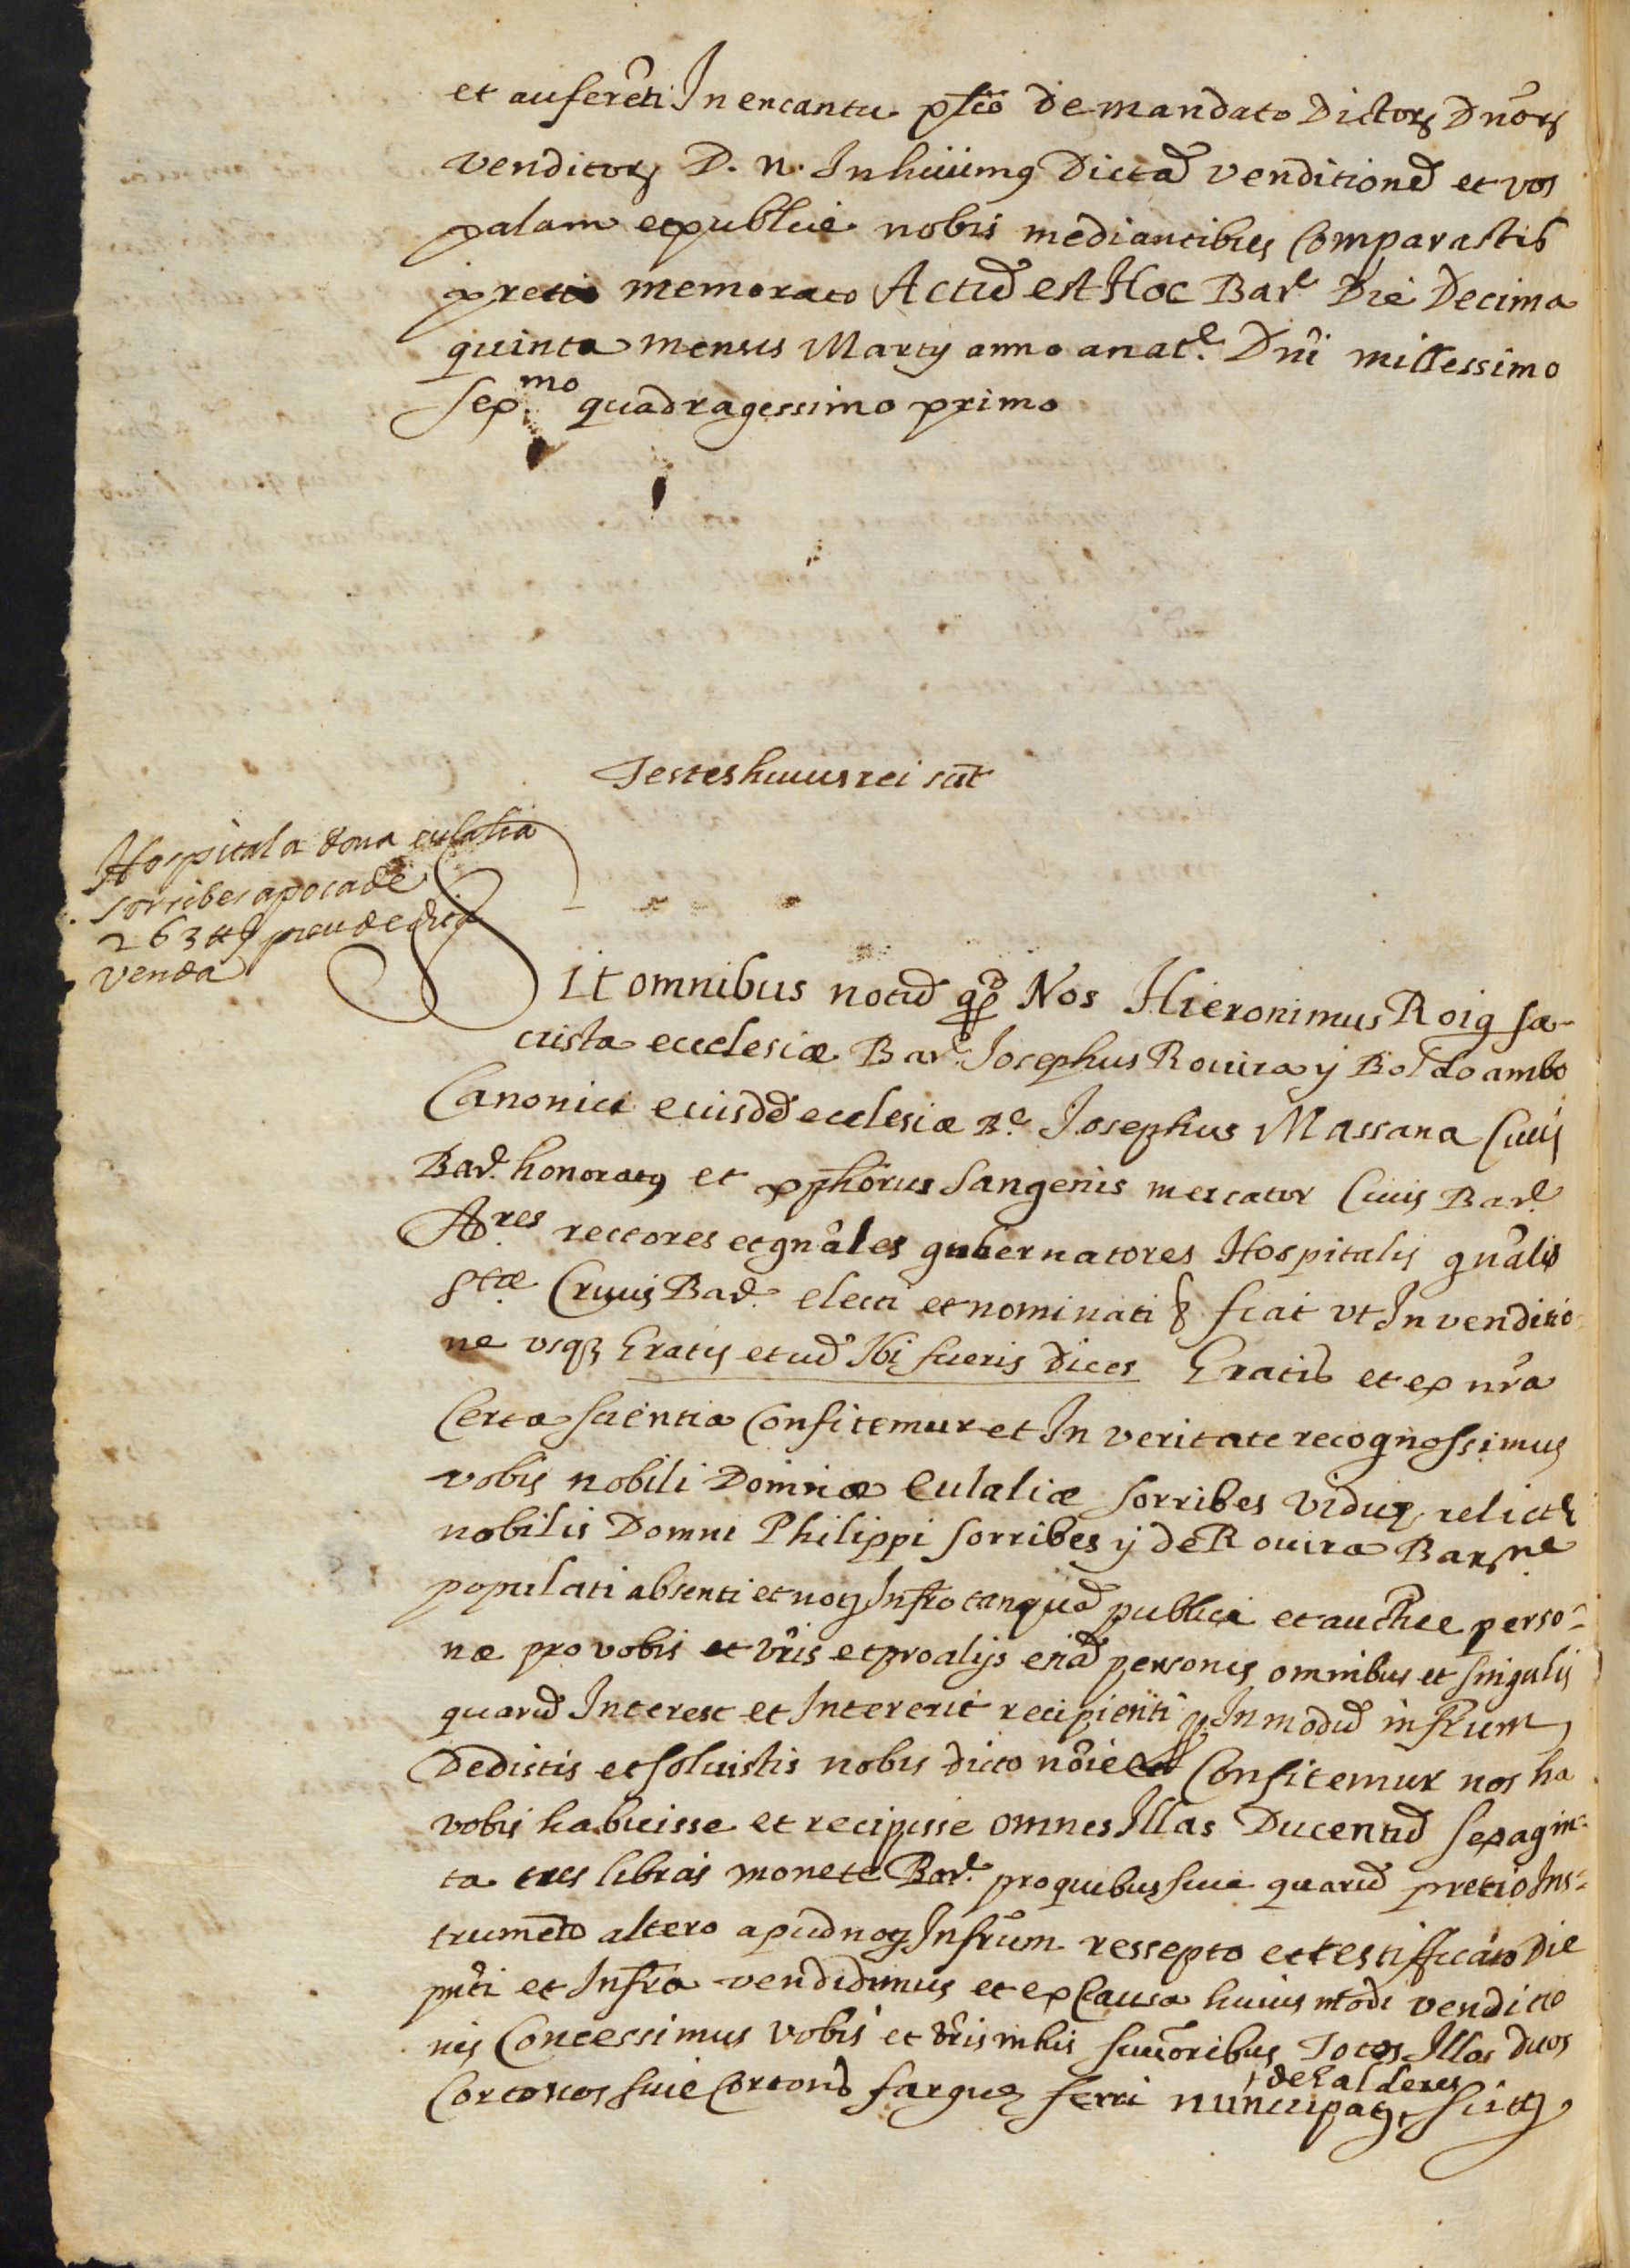 et auferēti In encantu pĩcõ de mandato Dictorȝ Dnõrȝ
venditorȝ D. n. Inhiuimȝ Dictad̃ venditioned̃ et vos
palam et publice nobis mediantibus Comparastis
pretio memorato Actud̃ est Hoc Barᵉ Die Decima
quinta mensis Martÿ anno anatᵉ. Dnĩ millessimo
sex.ᵐᵒ quadragessimo primo
Testes huius rei sũt
Hospital a dona eulalia
sorribes apoca de
263 ₶ preu de dita
venda
Sit omnibus notud̃ qd̃ Nos Hieronimus Roig sa-
crista ecclesiæ Barᵉ. Josephus Rouira y Boldo ambo
Canonici eiusdd̃ ecclesiæ Bᵉ. Josephus Massana Ciuis
Barᵉ. honoratȝ et xp̃horus Sangenis mercator Ciuis Barᵉ
Aᵈʳᵉˢ rectores et gnãles gubernatores Hospitalis gnãlis
Sᵗᵃᵉ Crucis Barᵉ. electi et nominati & fiat vt In venditio-
ne vsqȝ Gratis et ud̃ Ibi fueris dices Gratis et ex nrã
Certa scientia Confitemur et In veritate recognossimus
vobis nobili Dominæ Eulaliæ sorribes viduȩ relictȩ
nobilis Domni Philippi sorribes y de Rouira Barᶜⁿᵉ
populati absenti et noȝ Infrõ tanquad̃ publicȩ et auctħce perso-
næ pro vobis et vrĩs et pro alijs etiad̃ personis omnibus et singulis
quarud̃ Interest et Intererit recipienti qȝ In modud̃ infrũm
Dedistis et soluistis nobis dicto noĩe Confitemur nos ha
vobis habuisse et recipisse omnes Illas Ducentud̃ sexagin-
ta tres libras monete Barᵉ. pro quibus siue quarud̃ pretio Ins-
trumẽto altero apud noȝ Infrũm ressepto et testifficato Die
pñti et Infra vendidimus et ex Causa huius mõdi venditio
nis Concessimus vobis et vrĩs in his succ̃oribus Totos Illos duos
de Calderes
Cortonos siue Cortons fargue ferri nuncupatȝ, sittȝ